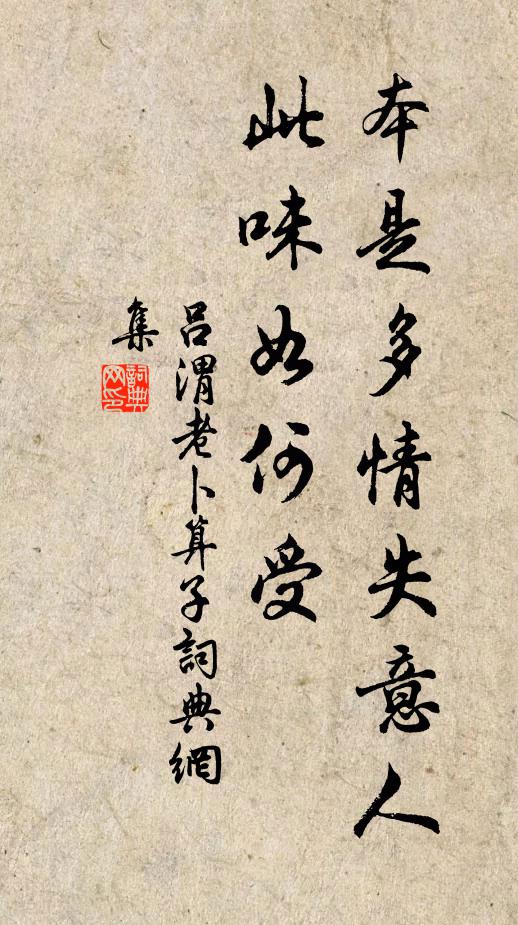 本是多情失意人
此味如何受
吕渭老卜算子詞典網
集
詞典
网印